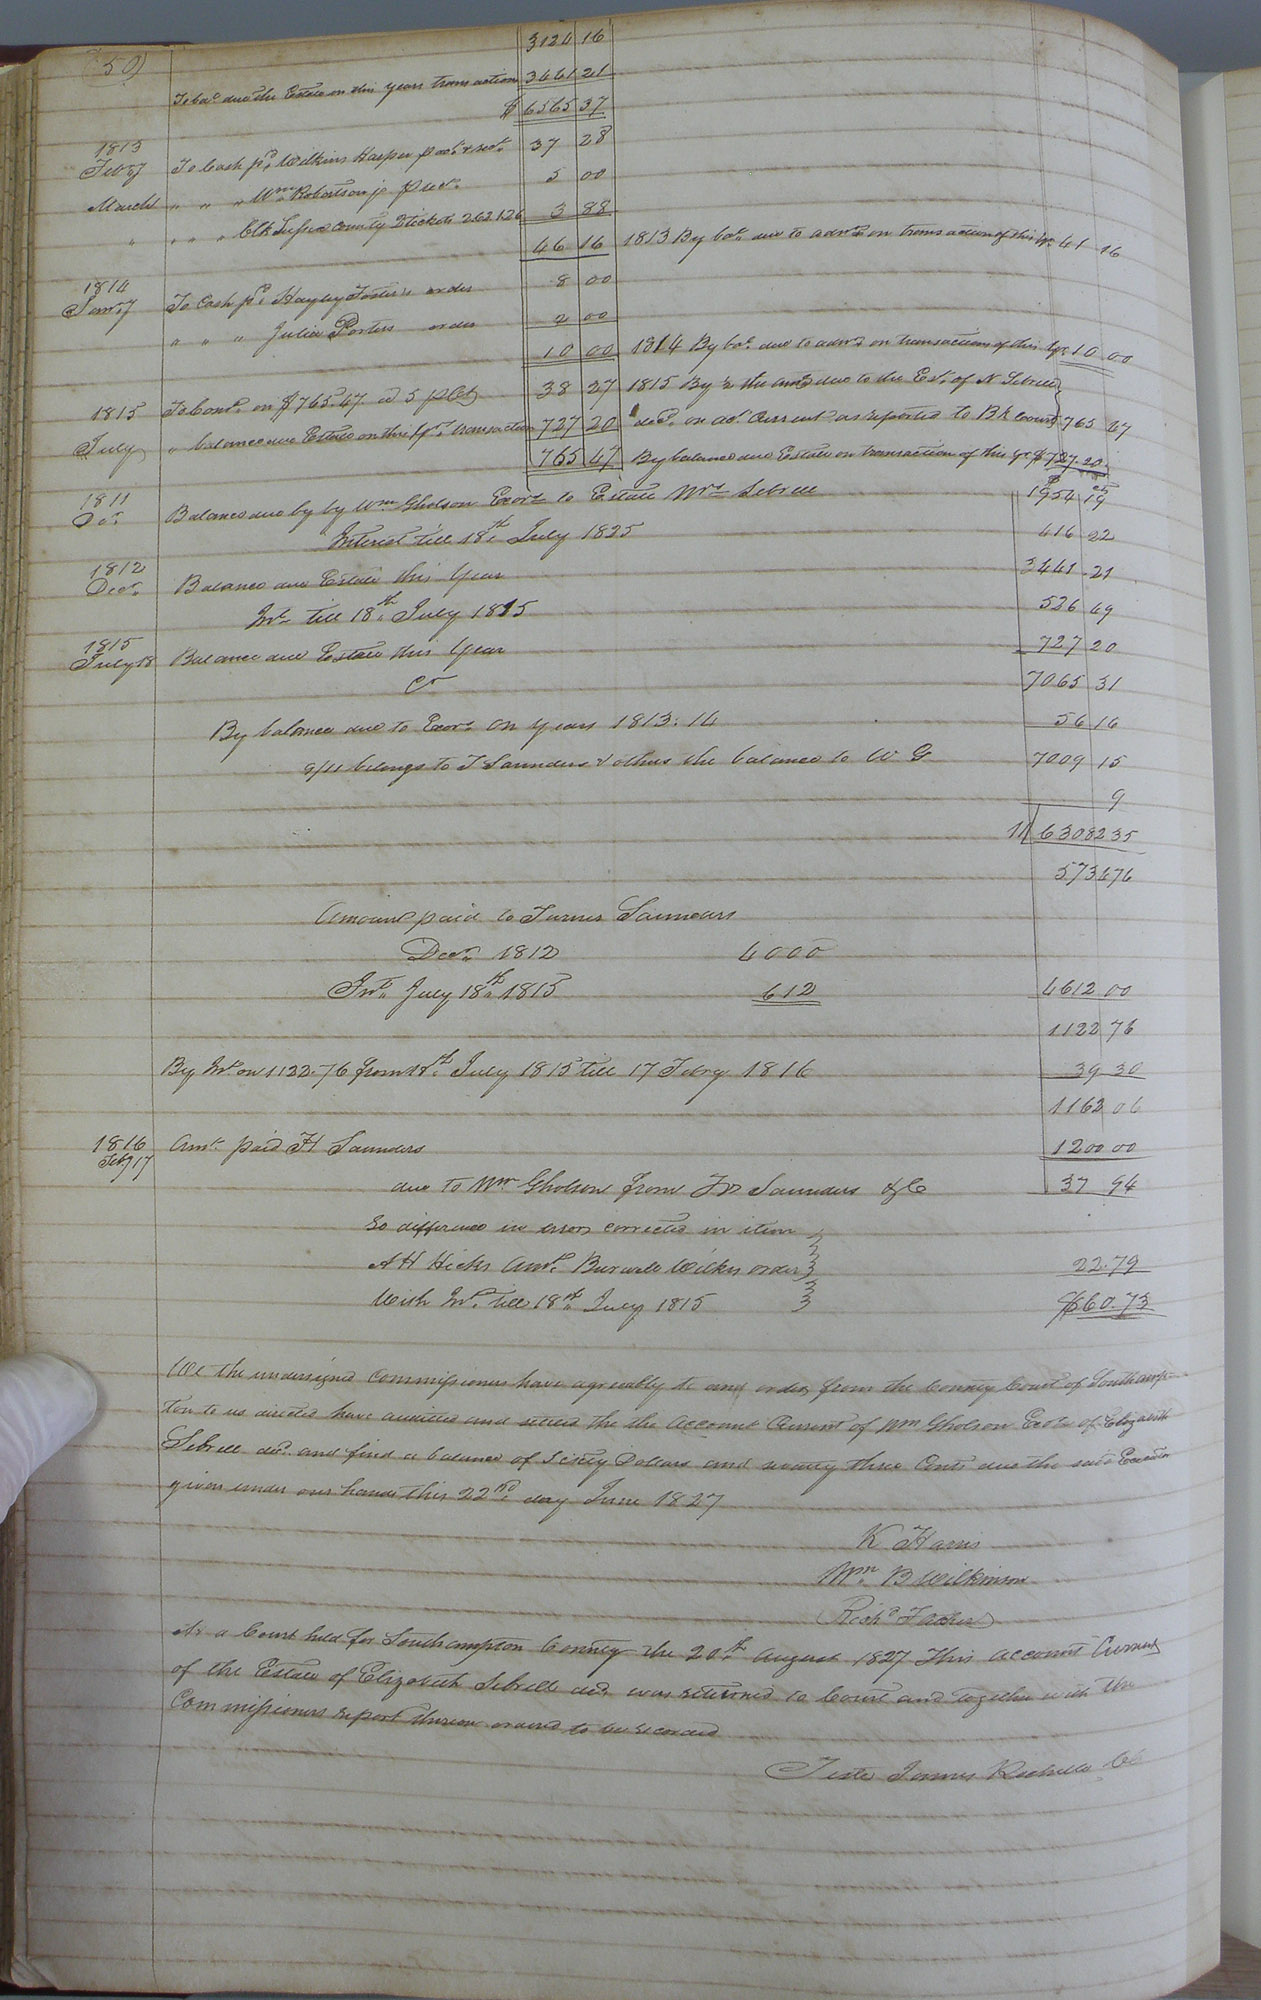 (50)
3124 16
To bal. due the Estate on this years transaction 3441 21
$ 6565 37
1813
Feby To Cash pd. Wilkins Harper p acct. & rect. 37 28
March " " " Wm. Robertson jr p rect. 5 00
" " " " Clk Sussex County 2 tickets 2.62 1.26 3 88
46 16 1813 By bal. due to admr. on transaction of this yr. 41 16
1814
Jany To Cash pd. Hayley Fosters order 8 00
" " " Julia Porters order 2 00
10 00 1814 By bal. due to admr. on transaction of this yr 10 00
1815 To Coms. on $765.47 @ 5 p Ct 38 27 1815 By the amt. due to the Est. of N Sebrell
July " balance due Estate on this yrs. transaction 727 20 decd. on act. Current as reported to Bk Court 765 47
765 47 By balance due Estate on transaction of this yr $727.20
1811
Dec. Balance due by by Wm Gholson Exor. to Estate Mrs Sebrell 1954 19
Interest till 18th July 1825 416 22
1812
Decr. Balance due Estate this Year 3441.21
Int. till 18th July 1815 526 49
1815
July 18 Balance due Estate this Year 727 20
Cr 7065 31
By balance due to Exor. on years 1813. 14 56 16
9/11 belongs to T Saunders & others the balance to W G 7009 15
9
11/ 63082 35
5734 76
Amount paid to Turner Saunders
Decr. 1812 4000
Int. July 18th 1815 612 4612 00
1122 76
By Int. on 1122.76 from 18th July 1815 till 17 Feby 1816 39 30
1162 06
1816
Feby 17 Amt. paid H Saunders 1200 00
due to Wm Gholson from Saunders &C 37 94
To difference in errors corrected in item
A H Hicks Amt. Burwell Wilkes order 22.79
With Int. till 18th July 1815 $60.73
We the undersigned Commissioners have agreeably to and order from the County Court of Southamp-
ton to us directed have audited and settled the the Account Current of Wm Gholson Exor. of Elizabeth
Sebrell decd. and find a balance of Sixty Dollars and seventy three Cents due the said Executor
given under our hands this 22nd day June 1827
K Harris
Wm B Wilkinson
Richd
At a Court held for Southampton County the 20th August 1827 This account Current
of the Estate of Elizabeth Sebrell decd. was returned to Court and together with the
Commissioners report thereon ordered to be recorded
Teste James Rochelle CC